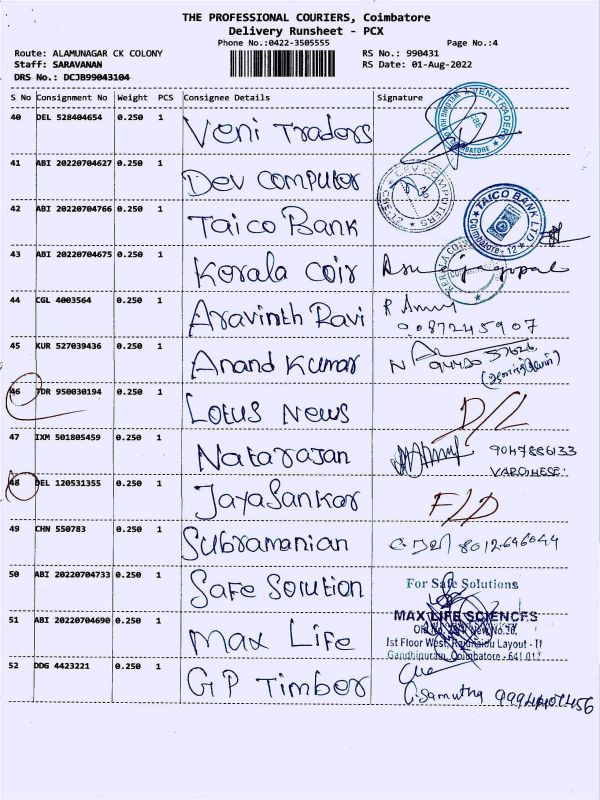 THE PROFESSIONAL COURIERS, Coimbatore
Delivery Runsheet - PCX
Phone No.:0422-3505555 Page No.:4
Route: ALAMUNAGAR CK COLONY RS No.: 990431
Staff: SARAVANAN RS Date: 01-Aug-2022
DRS No.: DCJB99043104
S No Consignment No Weight PCS Consignee Details Signature
40 DEL 528404654 0.250 1 Veni Traders
VENI TRADERS
41 ABI 20220704627 0.250 1 Dev Computer
DEV COMPUTERS
42 ABI 20220704766 0.250 1 Taico Bank
TAICO BANK LTD
Coimbatore - 12
43 ABI 20220704675 0.250 1 Kerala Coir
44 CGL 4003564 0.250 1 Aravinth Ravi
45 KUR 527039436 0.250 1 Anand Kumar
46 TDR 950030194 0.250 1 Lotus News D/L
47 IXM 501805459 0.250 1 Natarajan
VARGHESE.
48 DEL 120531355 0.250 1 JayaSankar F/D
49 CHN 550783 0.250 1 Subramanian 8012646044
50 ABI 20220704733 0.250 1 Safe Solution For Safe Solutions
51 ABI 20220704690 0.250 1 Max Life MAX LIFE SCIENCES
1st Floor West, Rajunaidu Layout - 11
Gandhipuram, Coimbatore - 641 012
52 DDG 4423221 0.250 1 GP Timber